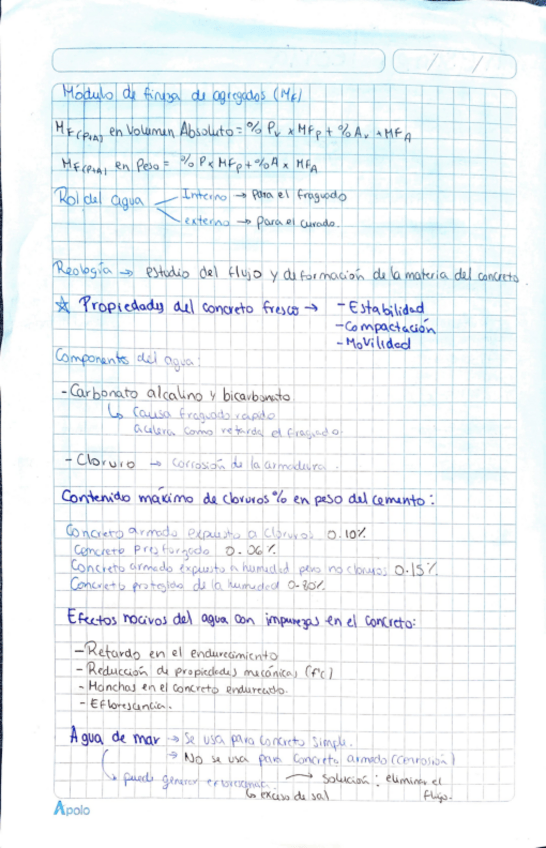 Módulo de fineza de agregados (MF)
MF(P+A) en Volumen Absoluto = % Pv x MFP + % Av x MFA
MF(P+A) en Peso = % P x MFP + % A x MFA
Rol del agua Interno → Para el fraguado
externo → Para el curado.
Reología → estudio del flujo y deformación de la materia del concreto
☆ Propiedades del concreto fresco → - Estabilidad
- Compactación
- Movilidad
Componentes del agua:
- Carbonato alcalino y bicarbonato
↳ Causa fraguado rapido
acelera como retarda el fraguado.
- Cloruro → Corrosión de la armadura.
Contenido máximo de cloruros % en peso del cemento:
Concreto armado expuesto a cloruros 0.10%
Concreto Presforzado 0.06%
Concreto armado expuesto a humedad pero no cloruros 0.15%
Concreto protegido de la humedad 0.80%
Efectos nocivos del agua con impurezas en el concreto:
- Retardo en el endurecimiento
- Reducción de propiedades mecánicas (f'c)
- Manchas en el concreto endurecido.
- Eflorescencia.
Agua de mar → Se usa para concreto simple.
→ No se usa para concreto armado (corrosión)
↳ puede generar → solución: eliminar el
↳ exceso de sal flujo.
Apolo